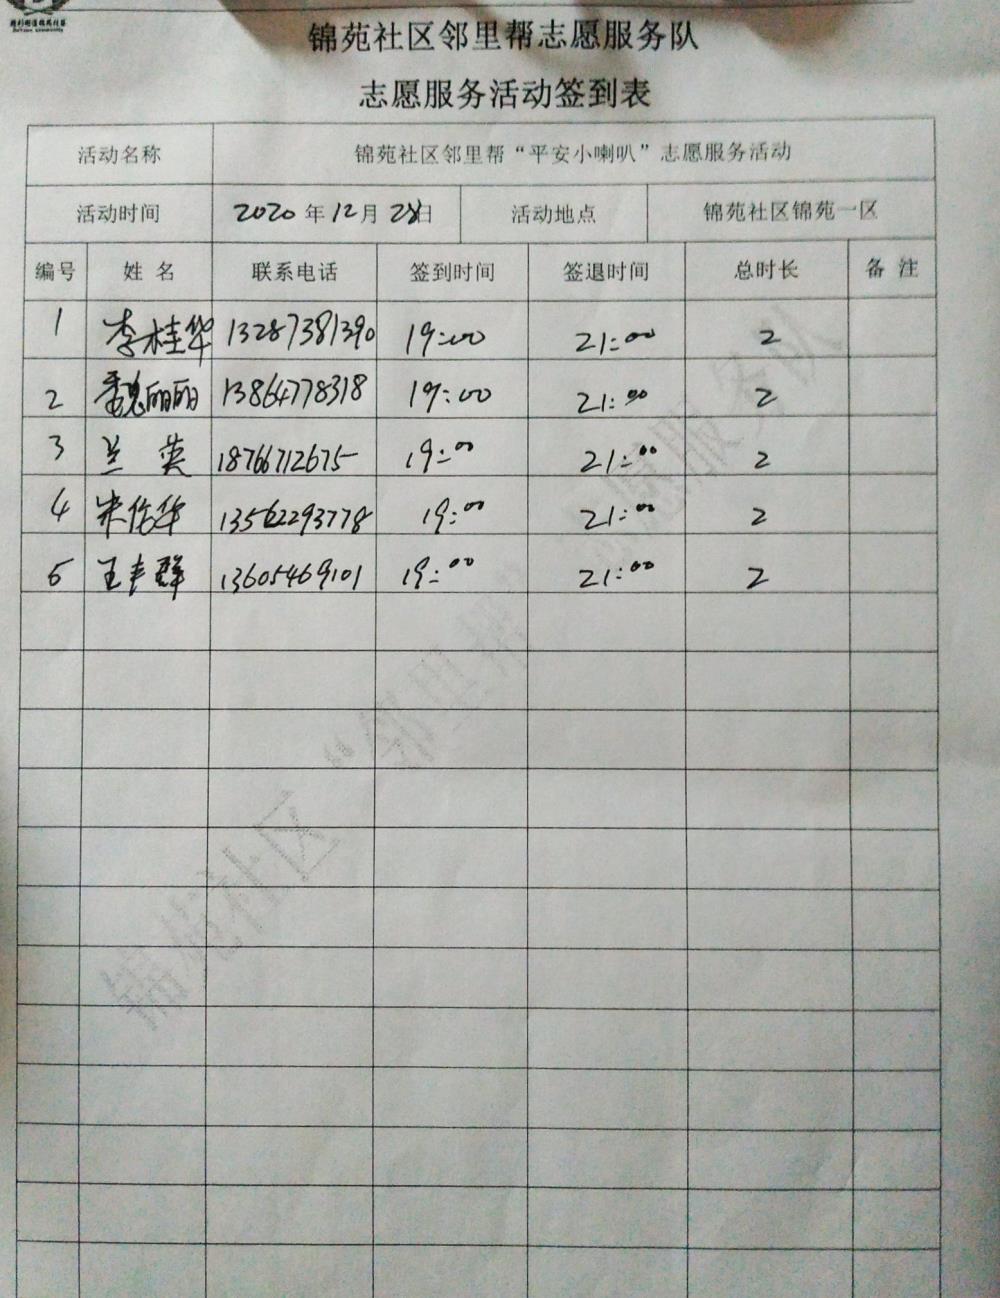 锦苑社区邻里帮志愿服务队
志愿服务活动签到表
活动名称 锦苑社区邻里帮“平安小喇叭”志愿服务活动
活动时间 2020年12月28日 活动地点 锦苑社区锦苑一区
编号 姓名 联系电话 签到时间 签退时间 总时长 备注
1 李桂华 13287381390 19:00 21:00 2
2 魏丽丽 13864778318 19:00 21:00 2
3 兰英 18766712675 19:00 21:00 2
4 宋伦华 13562293778 19:00 21:00 2
5 王丰群 13605469101 19:00 21:00 2
锦苑社区“邻里帮”志愿服务队